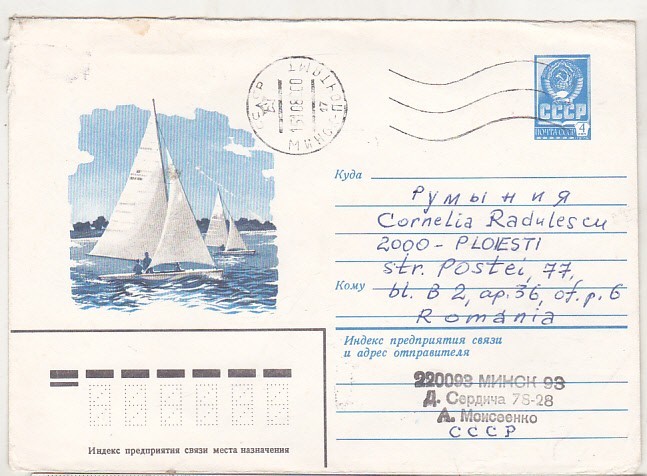 СССР
МИНСК
ПОЧТАМТ
СССР
ПОЧТА СССР
4
Куда
Румыния
Cornelia Radulescu
2000 - PLOIESTI
str. Postei, 77,
Кому
bl. B 2, ap. 36, of. p. 6
Romania
Индекс предприятия связи
и адрес отправителя
220093 МИНСК 93
Д. Сердича 78-28
А. Моисеенко
СССР
Индекс предприятия связи места назначения